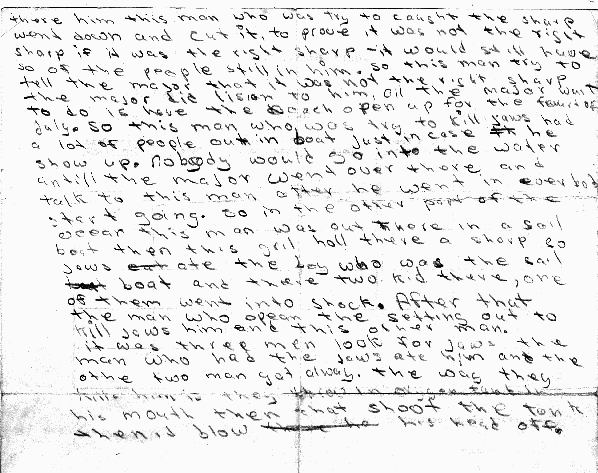 there him this man who was try to caught the sharp
went down and cut it. to prove it was not the right
sharp if it was the right sharp it would still have
so of the people still in him. so this man try to
tell the major that it was not the right sharp
the major did lision to him, all the major want
to do is have the beach open up for the fourt of
July. so this man who was try to kill jaws had
a lot of people out in boat just in case he
show up. Nobody would go into the water
antill the major went over there and
talk to this man after he went in everbody
start going. so in the other part of the
ocear this man was out there in a sail
boat then this gril holl there a sharp so
jaws ate the boy who was the sail
boat and there two kid there, one
of them went into shock. After that
the man who opean the setting out to
kill jaws him and this other man.
it was three men look for jaws the
man who had the jaws ate him and the
othe two man got alway. the way they
him is they in
his mouth then that shoot the tank
then it blow his head off.